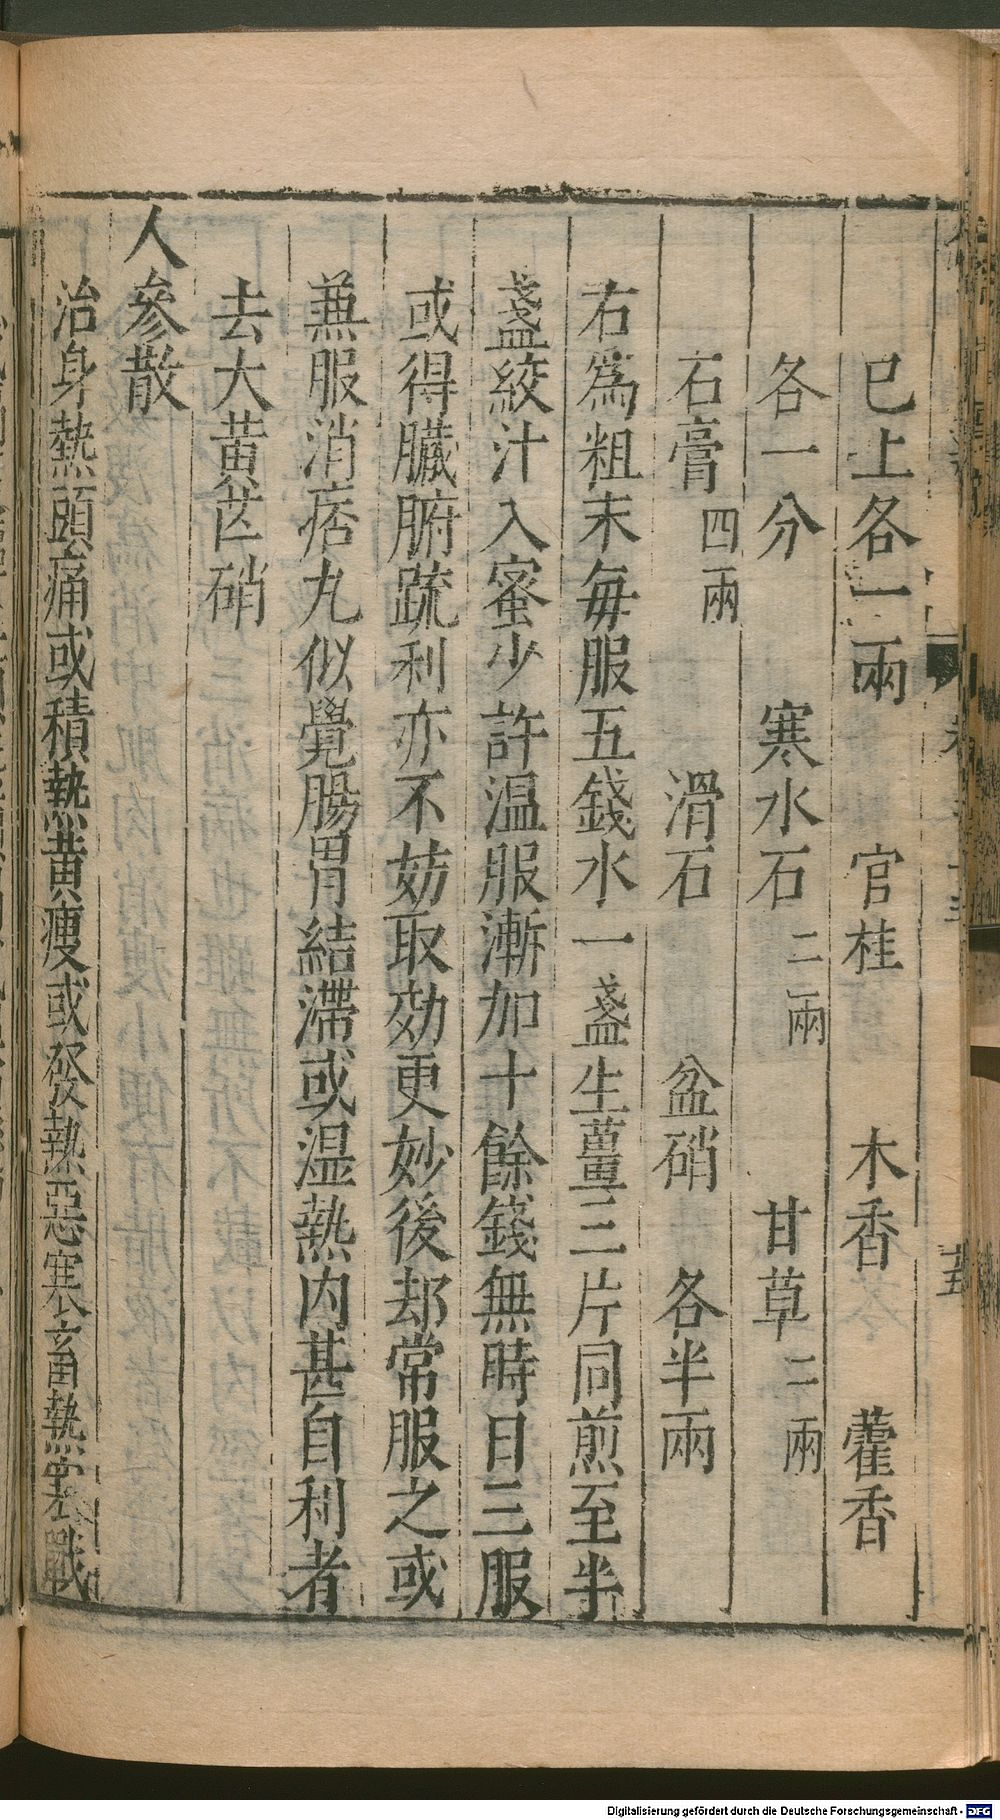 已上各一兩　官桂　木香　藿香
各一分　寒水石二兩　甘草二兩
石膏四兩　滑石　盆硝　各半兩
右爲粗末每服五錢水一盞生薑三片同煎至半
盞絞汁入蜜少許温服漸加十餘錢無時日三服
或得臟腑疏利亦不妨取効更妙後却常服之或
兼服消痞丸似覺腸胃結滯或湿熱内甚自利者
去大黃芒硝
人參散
治身熱頭痛或積熱黃瘦或發熱惡寒畜熱寒戰
Digitalisierung gefördert durch die Deutsche Forschungsgemeinschaft - DFG